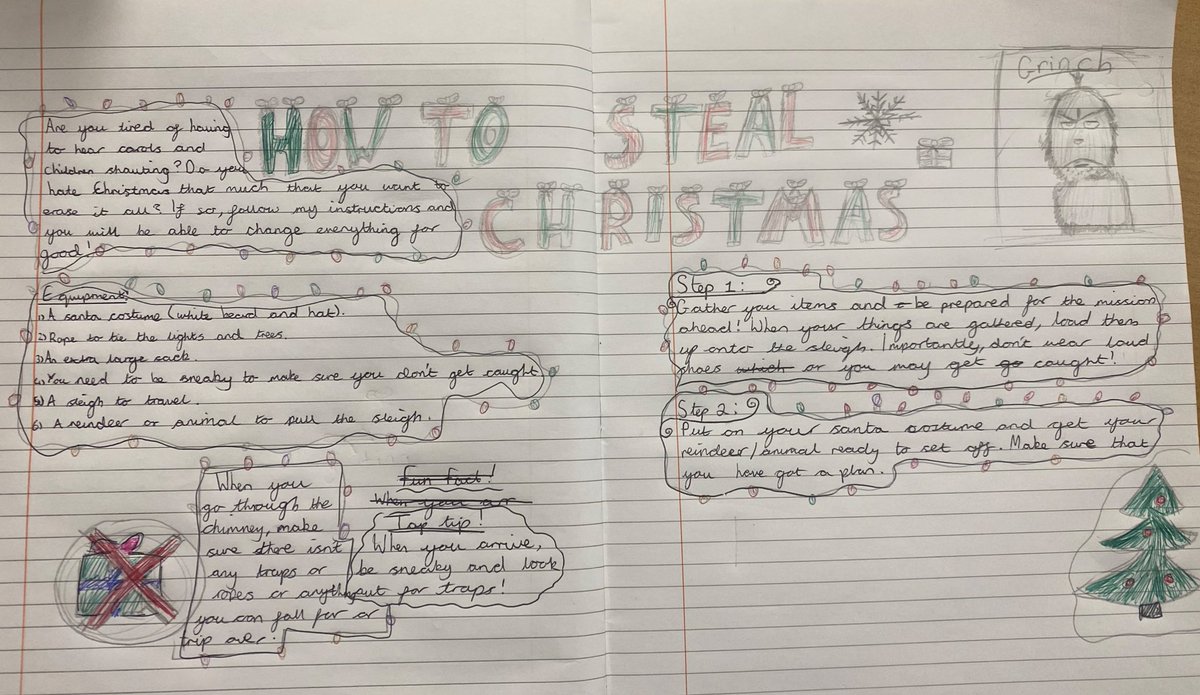 HOW TO STEAL
CHRISTMAS
Grinch
Are you tired of having
to hear carols and
children shouting? Do you
hate Christmas that much that you want to
erase it all? If so, follow my instructions and
you will be able to change everything for
good!
Equipment:
1) A santa costume (white beard and hat).
2) Rope to tie the lights and trees.
3) An extra large sack.
4) You need to be sneaky to make sure you don't get caught
5) A sleigh to travel.
6) A reindeer or animal to pull the sleigh.
When you
go through the
chimney, make
sure there isn't
any traps or
ropes or anything
you can fall for or
trip over.
Fun Fact!
When you ar
Top tip!
When you arrive,
be sneaky and look
out for traps!
Step 1:
Gather you items and be prepared for the mission
ahead! When your things are gattered, load them
up onto the sleigh. Importantly, don't wear loud
shoes which or you may get go caught!
Step 2:
Put on your santa costume and get your
reindeer/animal ready to set off. Make sure that
you have got a plan.